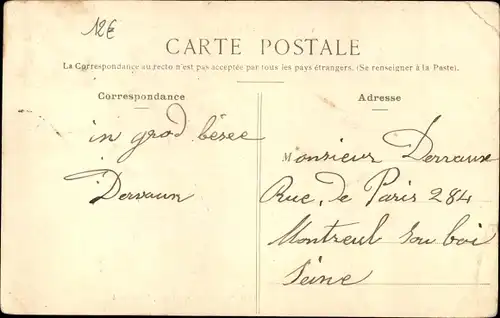 12€
CARTE POSTALE
La Correspondance au recto n'est pas acceptée par tous les pays étrangers. (Se renseigner à la Poste).
Correspondance
in grod béseé
Dervaux
Adresse
Monsieur Derraux
Rue, de Paris 284
Montreul sou boi
Seine